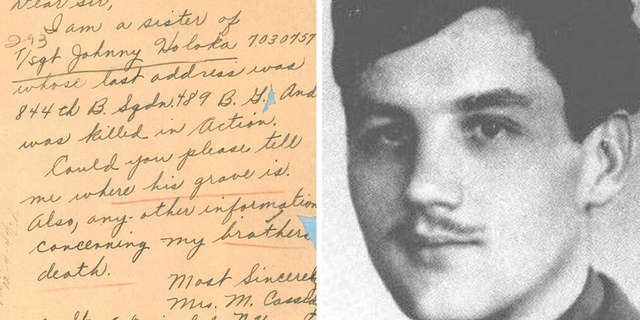 Dear Sir,
I am a sister of
T/sgt Johnny Holoka 7030757
whose last address was
844th B. Sqdn. 489 B. G. And
was killed in Action.
Could you please tell
me where his grave is.
Also, any other information
concerning my brothers
death.
Most Sincerely
Mrs. M.